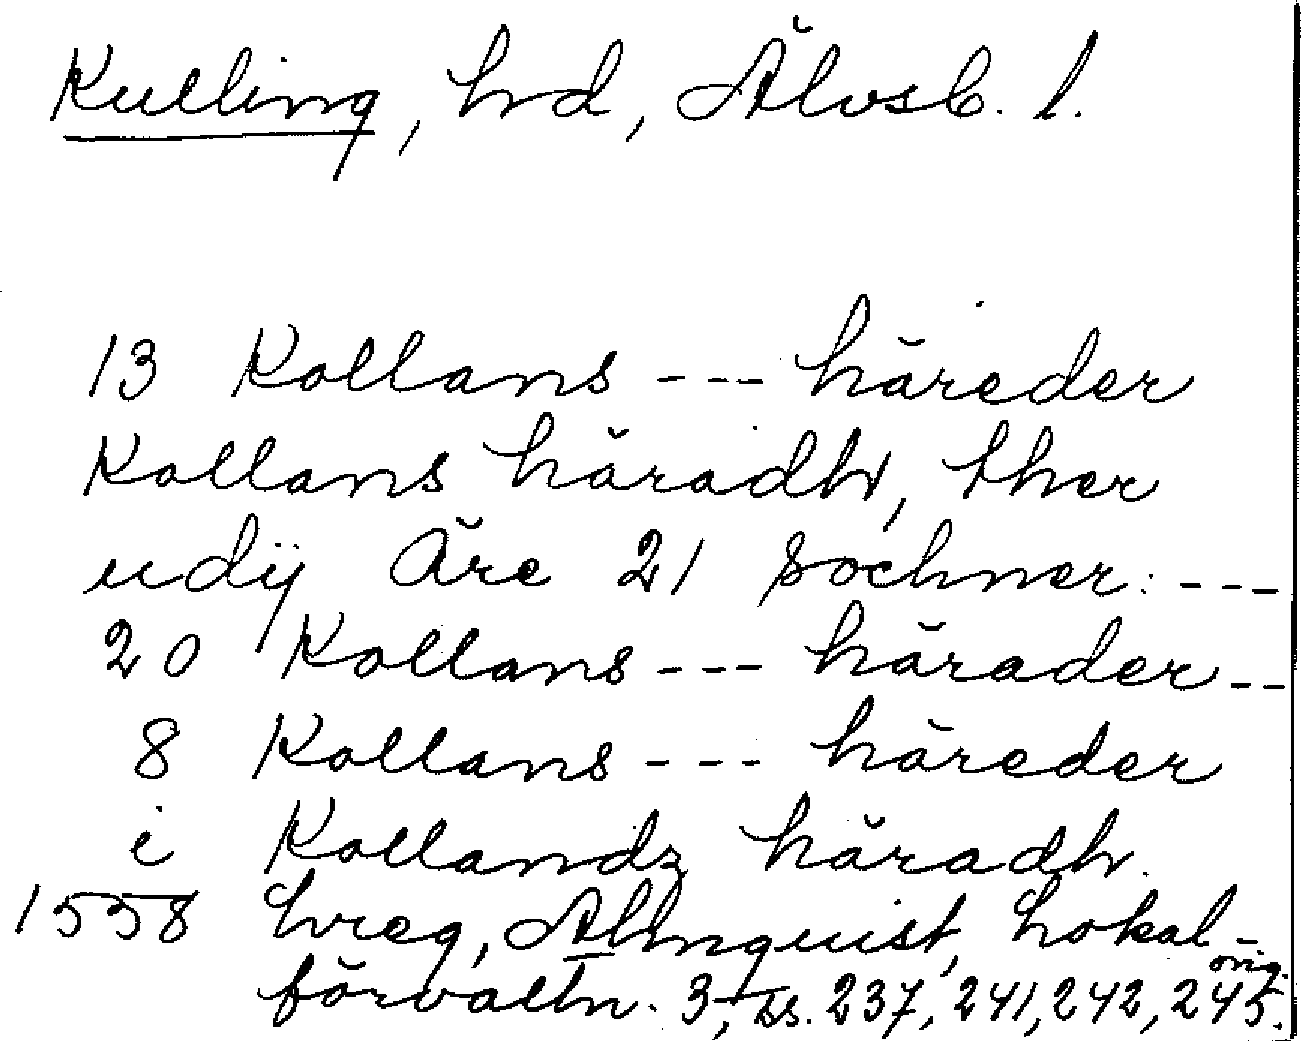 Kulling, hrd, Älvsb. l.
13 Kollans --- häreder
Kollans häradh, ther
udÿ Äre 21 sochner: ---
20 Kollans --- härader --
8 Kollans --- häreder
i Kollandz häradh.
1558 hreg, Almquist, Lokal-
förvaltn. 3, ss. 237, 241, 242, 245. orig.